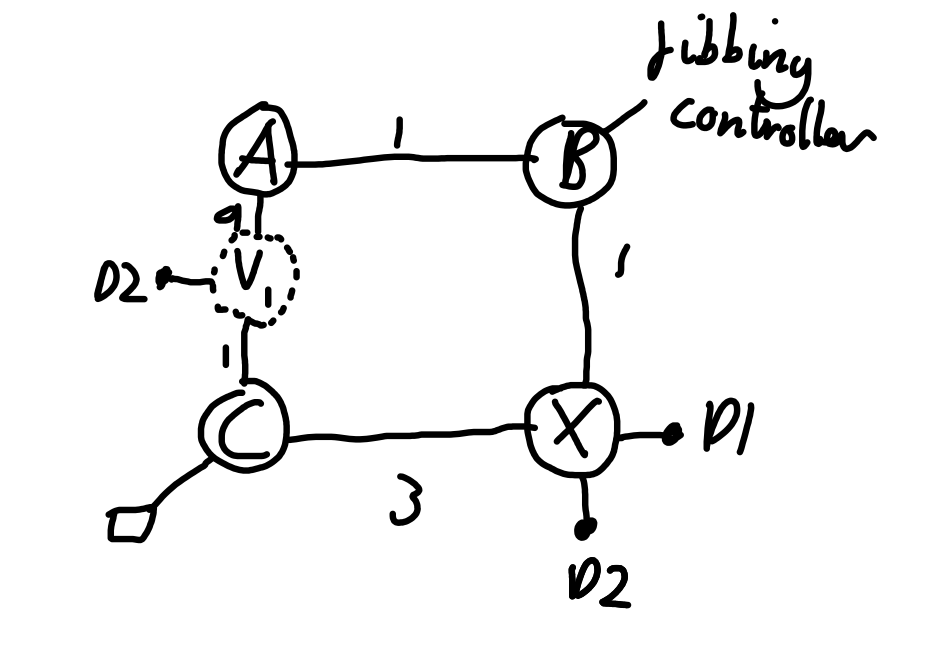 fibbing
controller
A
1
B
9
D2
V1
1
1
C
X
D1
3
D2